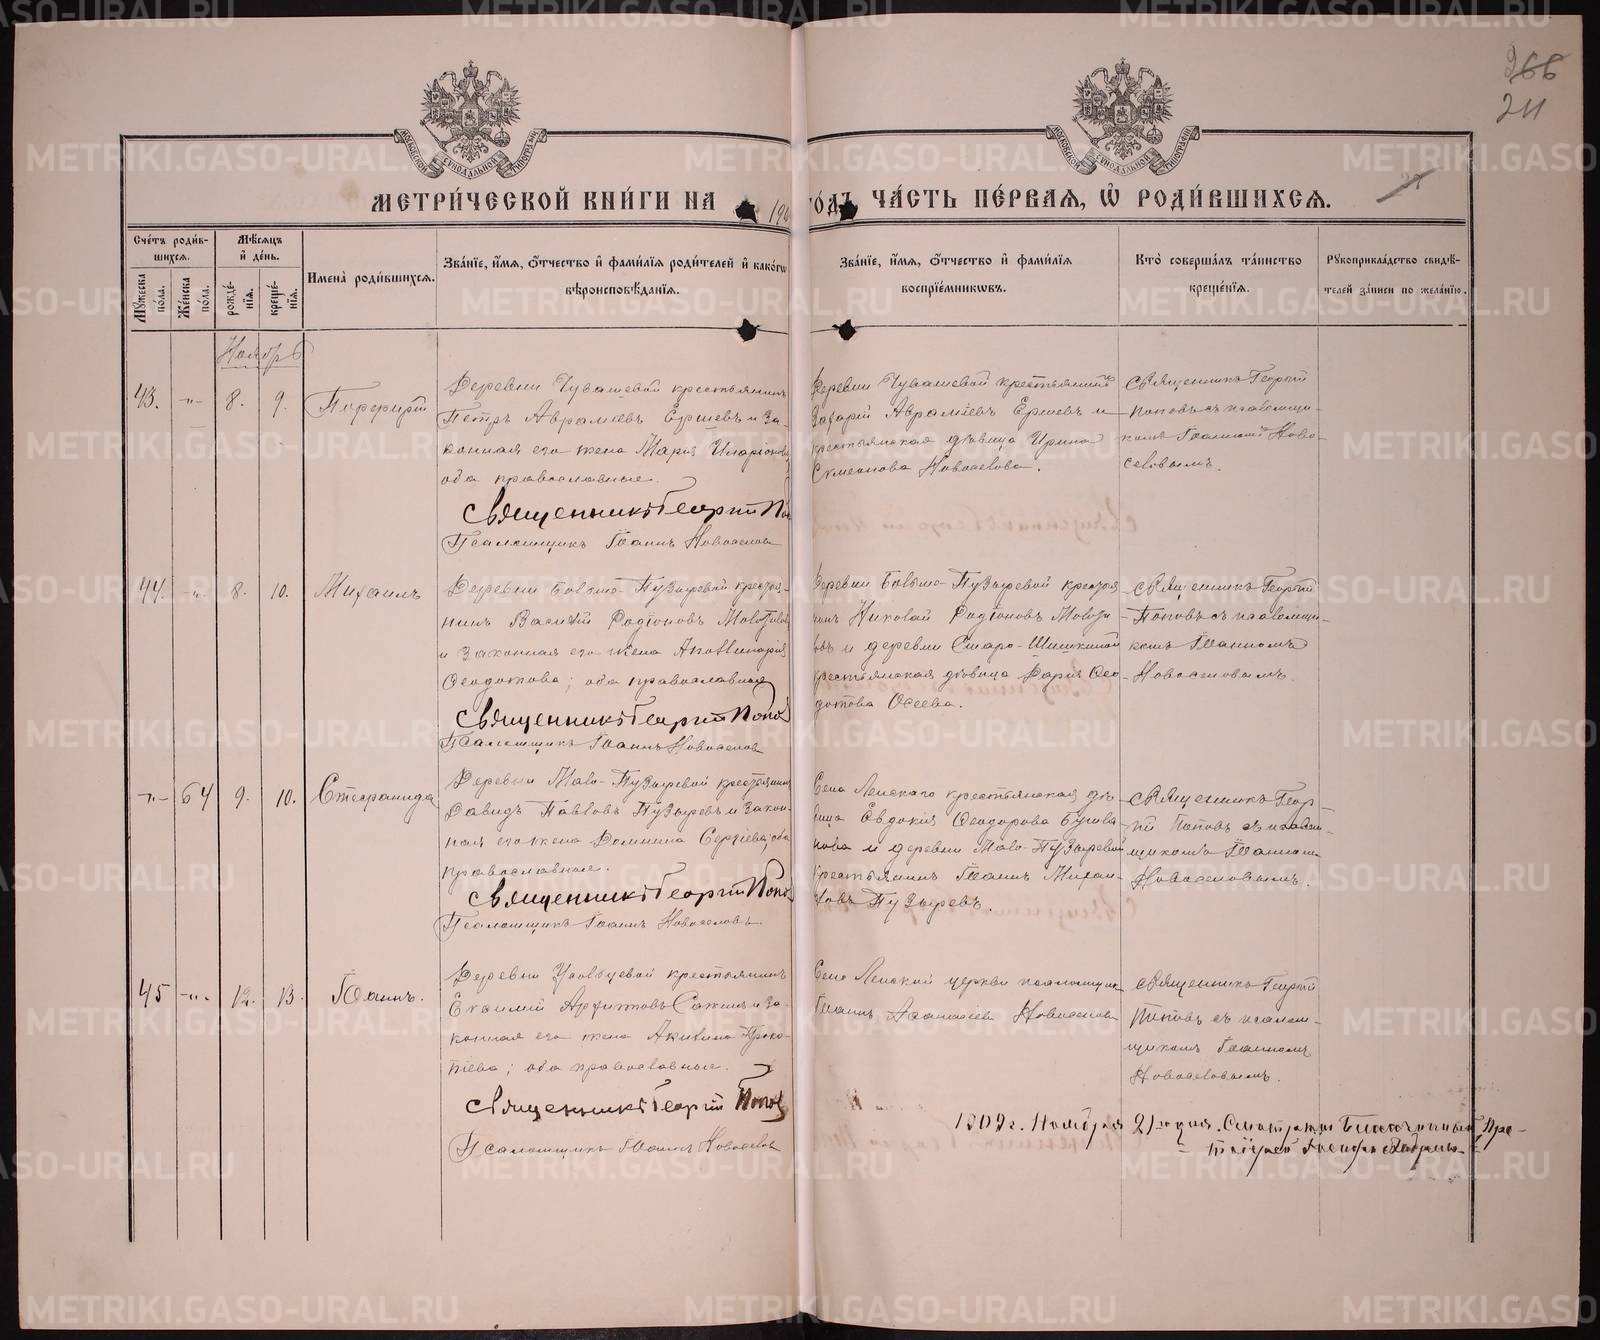 266
211
МЕТРИ́ЧЕСКОЙ КНИ́ГИ НА 190 ГОДЪ ЧА́СТЬ ПЕ́РВАЯ, Ѡ҆ РОДИ́ВШИХСЯ.
Сче́тъ роди́в-
шихся.
Мꙋ́жеска по́ла.
Же́нска по́ла.
Мѣ́сяцъ и҆ де́нь.
рожде́-
нїя.
креще́-
нїя.
И҆мена̀ роди́вшихся.
Зва́нїе, и҆́мя, ѻ҆́тчество и҆ фами́лїя роди́телей и҆ како́гѡ
вѣроисповѣ́данїя.
Зва́нїе, и҆́мя, ѻ҆́тчество и҆ фами́лїя
воспрїе́мникѡвъ.
Кто̀ соверша́лъ та́инство
креще́нїя.
Рꙋкоприкла́дство свидѣ́-
телей за́писи по жела́нїю.
Ноябрь
43. -"- 8. 9. Порфирій
Деревни Чувашевой крестьянинъ
Петръ Авраміевъ Ершевъ и за-
конная его жена Марія Иларіонова
оба православные.
Священникъ Георгій Поп
Псаломщикъ Іоаннъ Новоселовъ
Деревни Чувашевой крестьянинъ
Захарій Авраміевъ Ершевъ и
крестьянская дѣвица Ирина
Симеонова Новоселова.
Священникъ Георгій
Поповъ съ псаломщи-
комъ Іоанномъ Ново-
селовымъ.
44. -"- 8. 10. Михаилъ
Деревни Больше-Пузыревой крестья-
нинъ Василій Родіоновъ
и законная его жена Аполлинарія
Ѳеодотова; оба православные
Священникъ Георгій Попов
Псаломщикъ Іоаннъ Новоселовъ
Деревни Больше-Пузыревой крестья
нинъ Николай Родіоновъ
и деревни Старо-Шишкиной
крестьянская дѣвица Дарія Ѳео-
дотова Осеева.
Священникъ Георгій
Поповъ съ псаломщи-
комъ Іоанномъ
Новоселовымъ.
-"- 64 9. 10. Стефанида
Деревни Мало-Пузыревой крестьянинъ
Давидъ Павловъ Пузыревъ и закон-
ная его жена Домнина Сергіева, оба
православные.
Священникъ Георгій Попо
Псаломщикъ Іоаннъ Новоселовъ
Села Ленскаго крестьянская дѣ-
вица Евдокія Ѳеодорова
и деревни Мало-Пузыревой
крестьянинъ Іоаннъ Михаи-
ловъ Пузыревъ.
Священникъ Геор-
гій Поповъ съ псалом-
щикомъ Іоанномъ
Новоселовымъ.
45 -"- 12. 13. Іоаннъ.
Деревни Усольцевой крестьянинъ
Екимій Архиповъ Сажинъ и за-
конная его жена Акилина Проко-
піева; оба православные.
Священникъ Георгій Попов
Псаломщикъ Іоаннъ Новоселовъ
Села Ленской церкви псаломщикъ
Іоаннъ Аѳанасіевъ Новоселовъ
Священникъ Георгій
Поповъ съ псалом-
щикомъ Іоанномъ
Новоселовымъ.
1909 г. Ноября 21 го дня. Смотрѣлъ Благочинный, Про-
тоіерей
METRIKI.GASO-URAL.RU